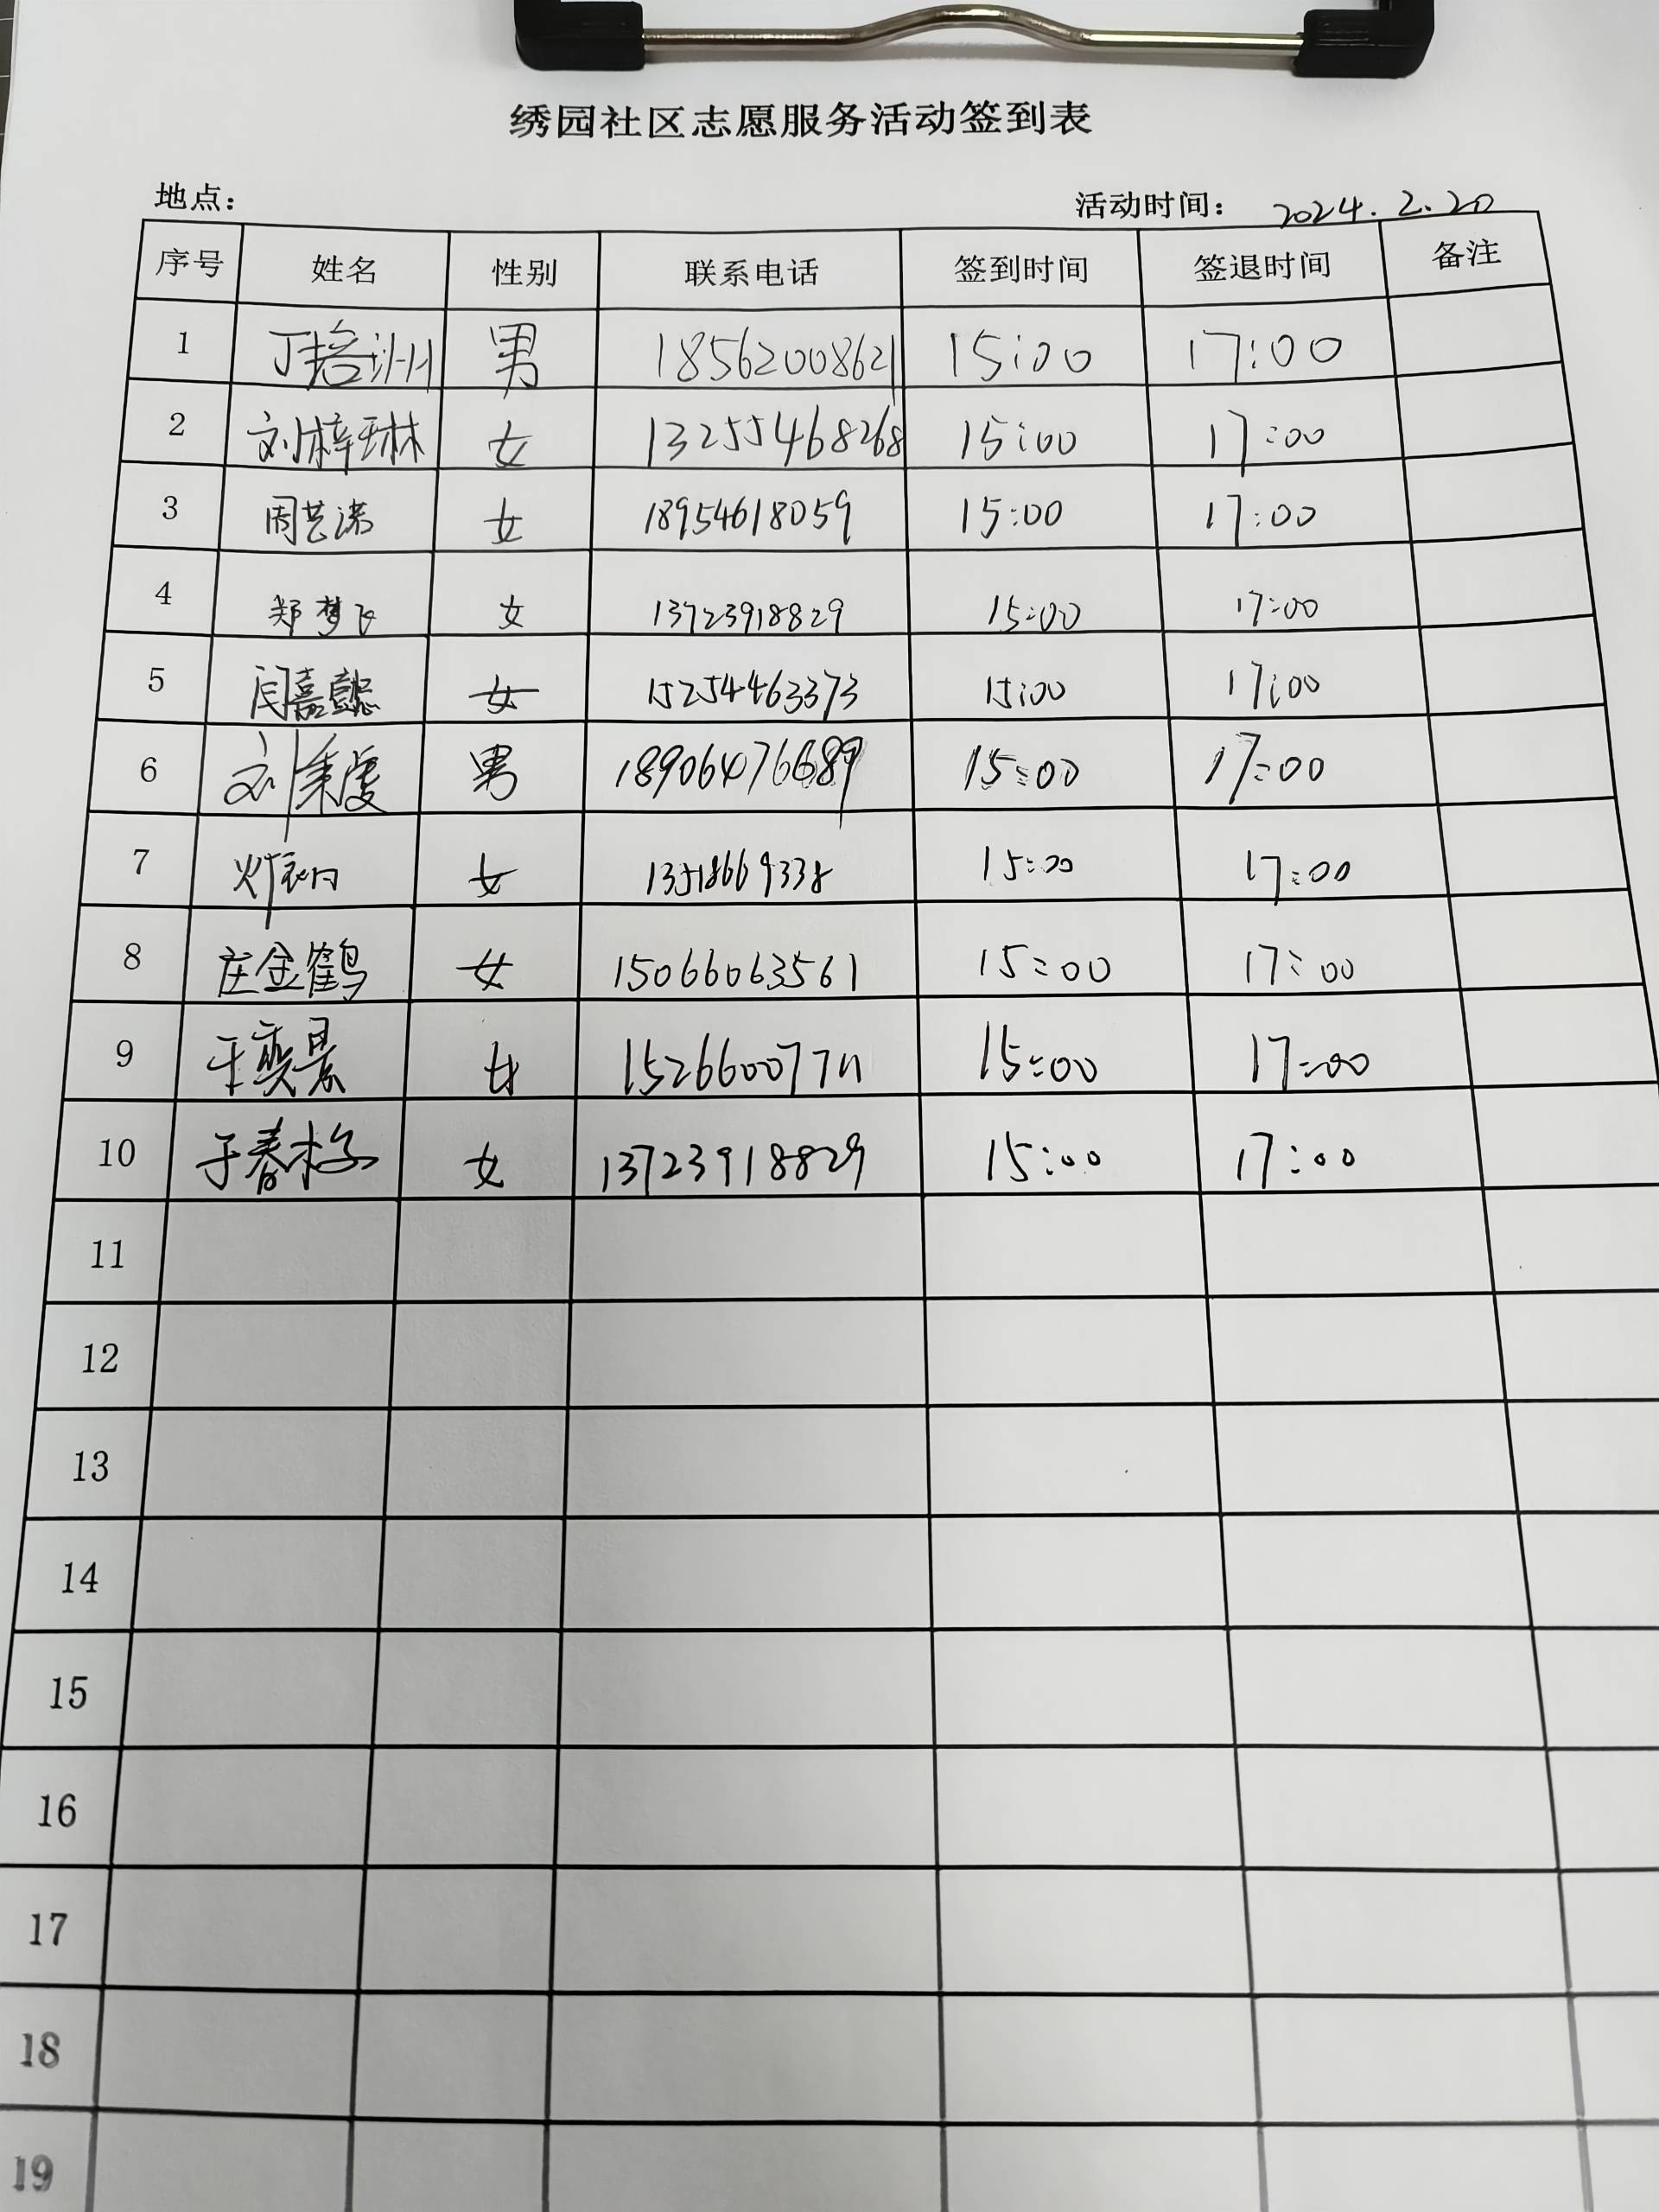 绣园社区志愿服务活动签到表
地点： 活动时间： 2024.2.20
序号 姓名 性别 联系电话 签到时间 签退时间 备注
1 丁培训 男 18562008621 15:00 17:00
2 刘梓琳 女 13255468268 15:00 17:00
3 周艺诺 女 18954618059 15:00 17:00
4 郑梦飞 女 13723918829 15:00 17:00
5 闫嘉懿 女 15254463373 15:00 17:00
6 刘秉虔 男 18906476689 15:00 17:00
7 女 13518669338 15:00 17:00
8 庄金鹤 女 15066063561 15:00 17:00
9 王奕景 女 15266007711 15:00 17:00
10 于春梅 女 13723918829 15:00 17:00
11
12
13
14
15
16
17
18
19